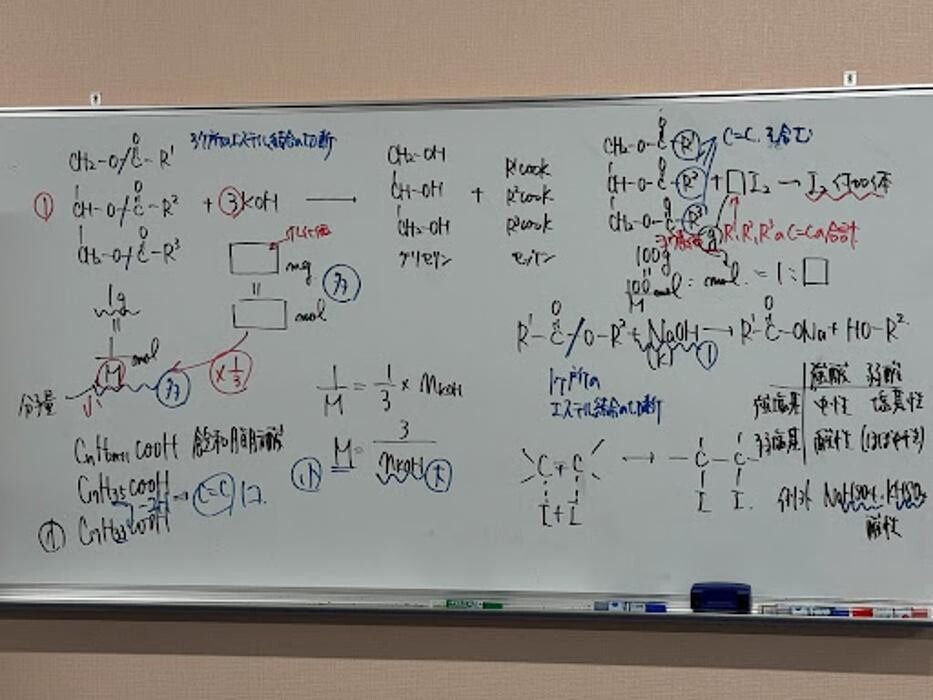 3ヶ所のエステル結合の切断
CH₂-O/C-R¹
O
① CH-O/C-R² + 3KOH →
O
CH₂-O/C-R³
O
CH₂-OH
CH-OH
CH₂-OH
グリセリン
+
R¹COOK
R²COOK
R³COOK
セッケン
けん化価
□ mg
=
□ mol
1g
=
1/M mol
分子量
×1/3
1/M = 1/3 × nKOH
M = 3/nKOH
小
大
CnH2n+1COOH 飽和脂肪酸
C17H35COOH
C17H33COOH
C=C
CH₂-O-C-R¹
O
CH-O-C-R² + □I₂ → I₂ 付加体
O
CH₂-O-C-R³
O
C=C を含む
R¹, R², R³のC=Cの合計
100g
100/M mol : mol = 1 : □
R¹-C/O-R² + NaOH → R¹-C-ONa + HO-R²
O
O
(K)
1ヶ所の
エステル結合の切断
C=C → -C-C-
I+I
I I
強酸 弱酸
強塩基 中性 塩基性
弱塩基 酸性 (ほぼ中性)
例外 NaHSO₄, KHSO₄
酸性